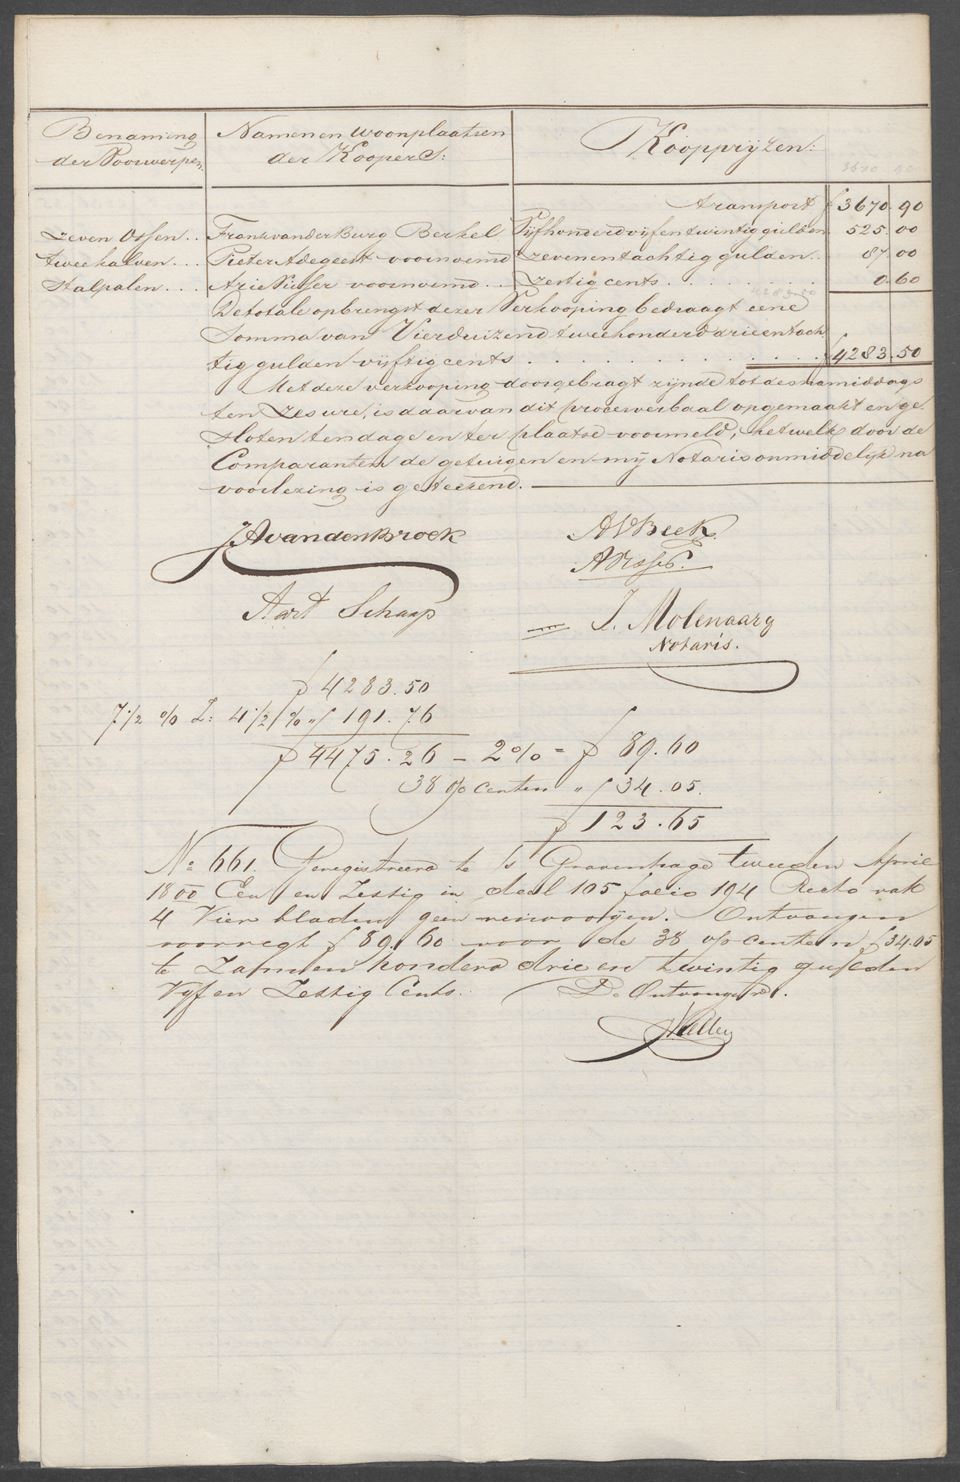 Benaming der Voorwerpen.
Namen en woonplaatsen der Koopers:
Koopprijzen:
3670 90
Transport f 3670.90
Zeven Ossen.. Frans van der Burg Berkel Vijfhonderd vijf en twintig gulden 525.00
twee kalven.... Pieter Adegeest voornoemd zeven en tachtig gulden.. 87.00
Stalpalen.... Arie voornoemd.. zestig cents......... 0.60
4283.50
De totale opbrengst dezer Verkooping bedraagt eene
Somma van Vierduizend tweehonderd drieentach
tig gulden vijftig cents............. f 4283.50
Met deze verkooping doorgebragt zijnde tot des namiddags
ten Zes ure, is daarvan dit procesverbaal opgemaakt en ge
sloten ten dage en ter plaatse voormeld, hetwelk door de
Comparanten de getuigen en mij Notaris onmiddelijk na
voorlezing is geteekend.
JA van den Broek
AVBeek.
Aart Schaap
J. Molenaar
Notaris.
f 4283.50
7 1/2 % 4 1/2 % " f 191.76
f 4475.26 - 2% = f 89.60
38 % centen " f 34.05.
f 123.65
No 661. Geregistreerd te 's Gravenhage tweeden April
1800 Een en Zestig in deel 105 folio 194 Recto vak
4 Vier bladen geen renvooijen. Ontvangen
voor regt f 89.60 voor de 38 o/o centen f 34.05
te Zamen honderd drie en twintig gulden
Vijf en Zestig Cents.
De Ontvanger.